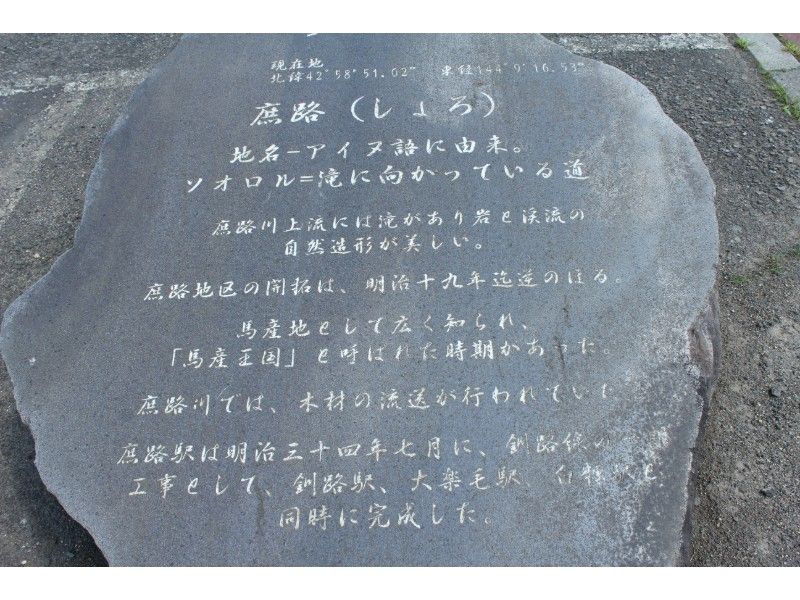 現在地
北緯42°58'51.02" 東経144°9'16.53"
庶路(しょろ)
地名-アイヌ語に由来。
ソオロル=滝に向かっている道
庶路川上流には滝があり岩と渓流の
自然造形が美しい。
庶路地区の開拓は、明治十九年迄逆のぼる。
馬産地として広く知られ、
「馬産王国」と呼ばれた時期があった。
庶路川では、木材の流送が行われていた
庶路駅は明治三十四年七月に、釧路線の
工事として、釧路駅、大楽毛駅、白糠駅と
同時に完成した。